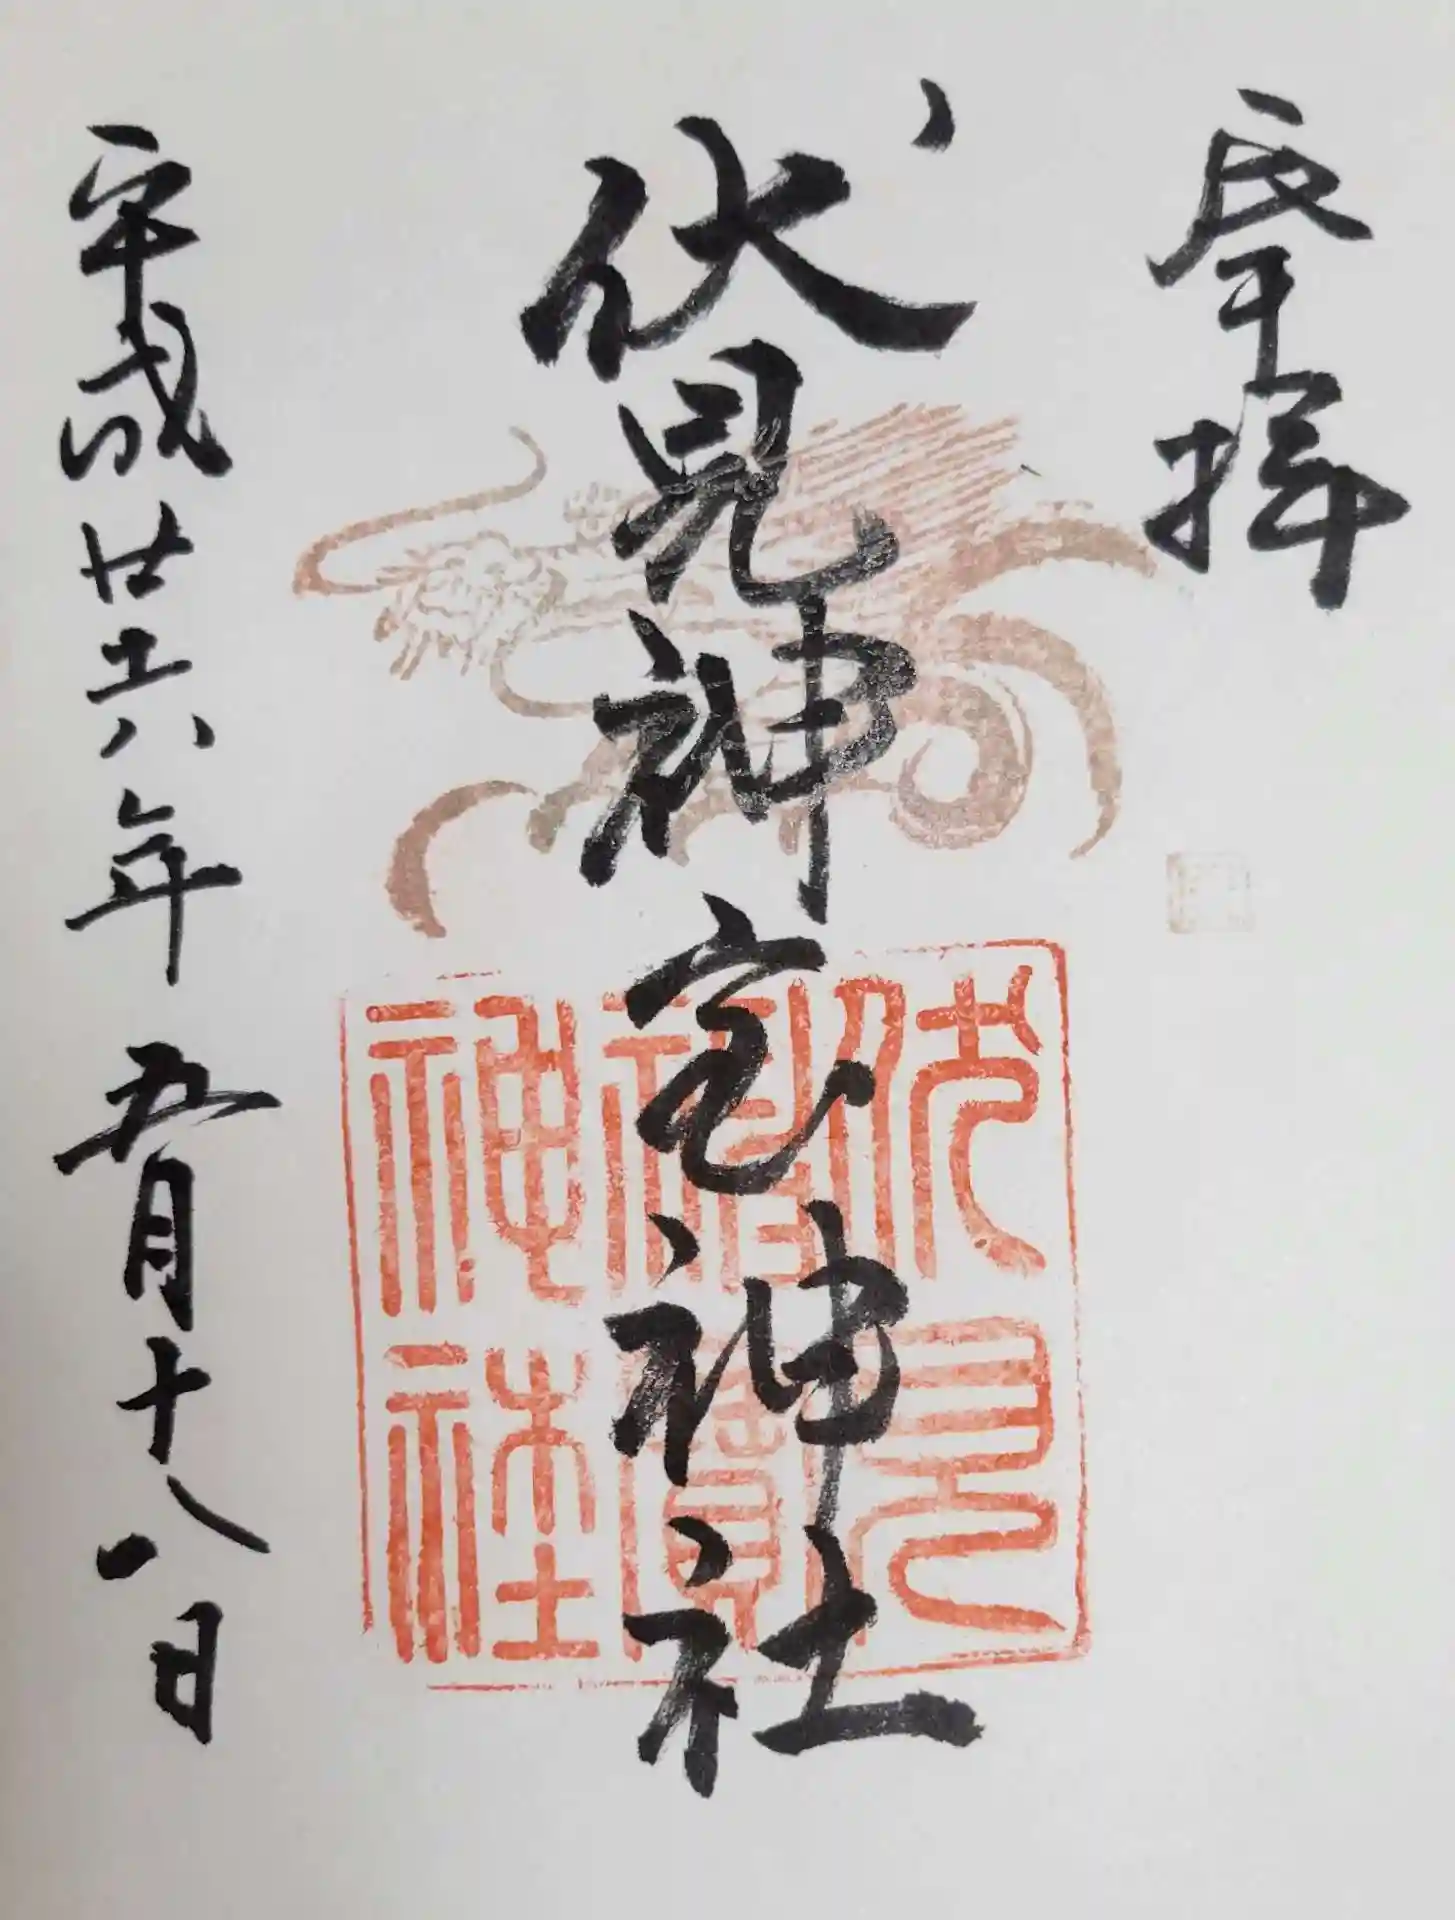 奉拝
伏見神宝神社
平成廿六年五月十八日
伏見
神寶
神社